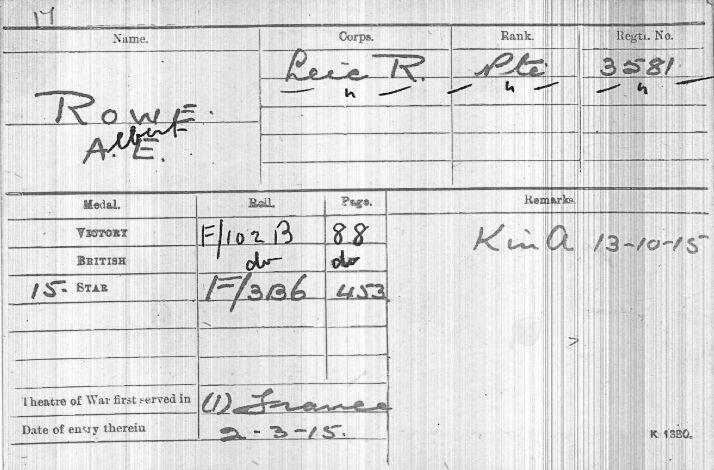 17
Name. Corps. Rank. Regtl. No.
Leic R. Pte 3581
— " — — " — — " —
ROWE.
Albert
A. E.
Medal. Roll. Page. Remarks.
VICTORY F/102 B 88 K in A 13-10-15
BRITISH do do
15. STAR F/3B6 453
Theatre of War first served in (1) France
Date of entry therein 2-3-15.
K 1380.